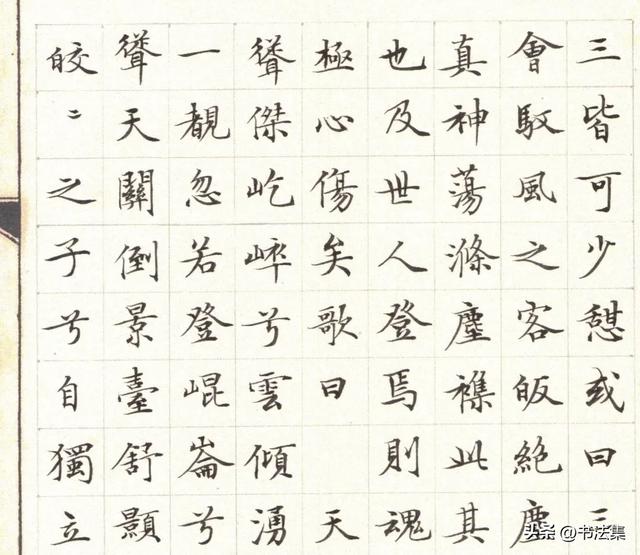 三皆可少憩或曰三
會馭風之客皈絶塵
真神蕩滌塵襟此其
也及世人登焉則魂
極心傷矣歌曰 天
聳傑屹崪兮雲傾湧
一覩忽若登崐崙兮
聳天關倒景臺舒顥
皎〻之子兮自獨立
头条 @书法集